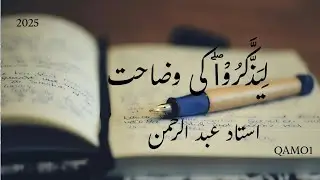 2025
لِيَذَّكَّرُوْاۖ کی وضاحت
استاد عبد الرحمٰن
QAMO1